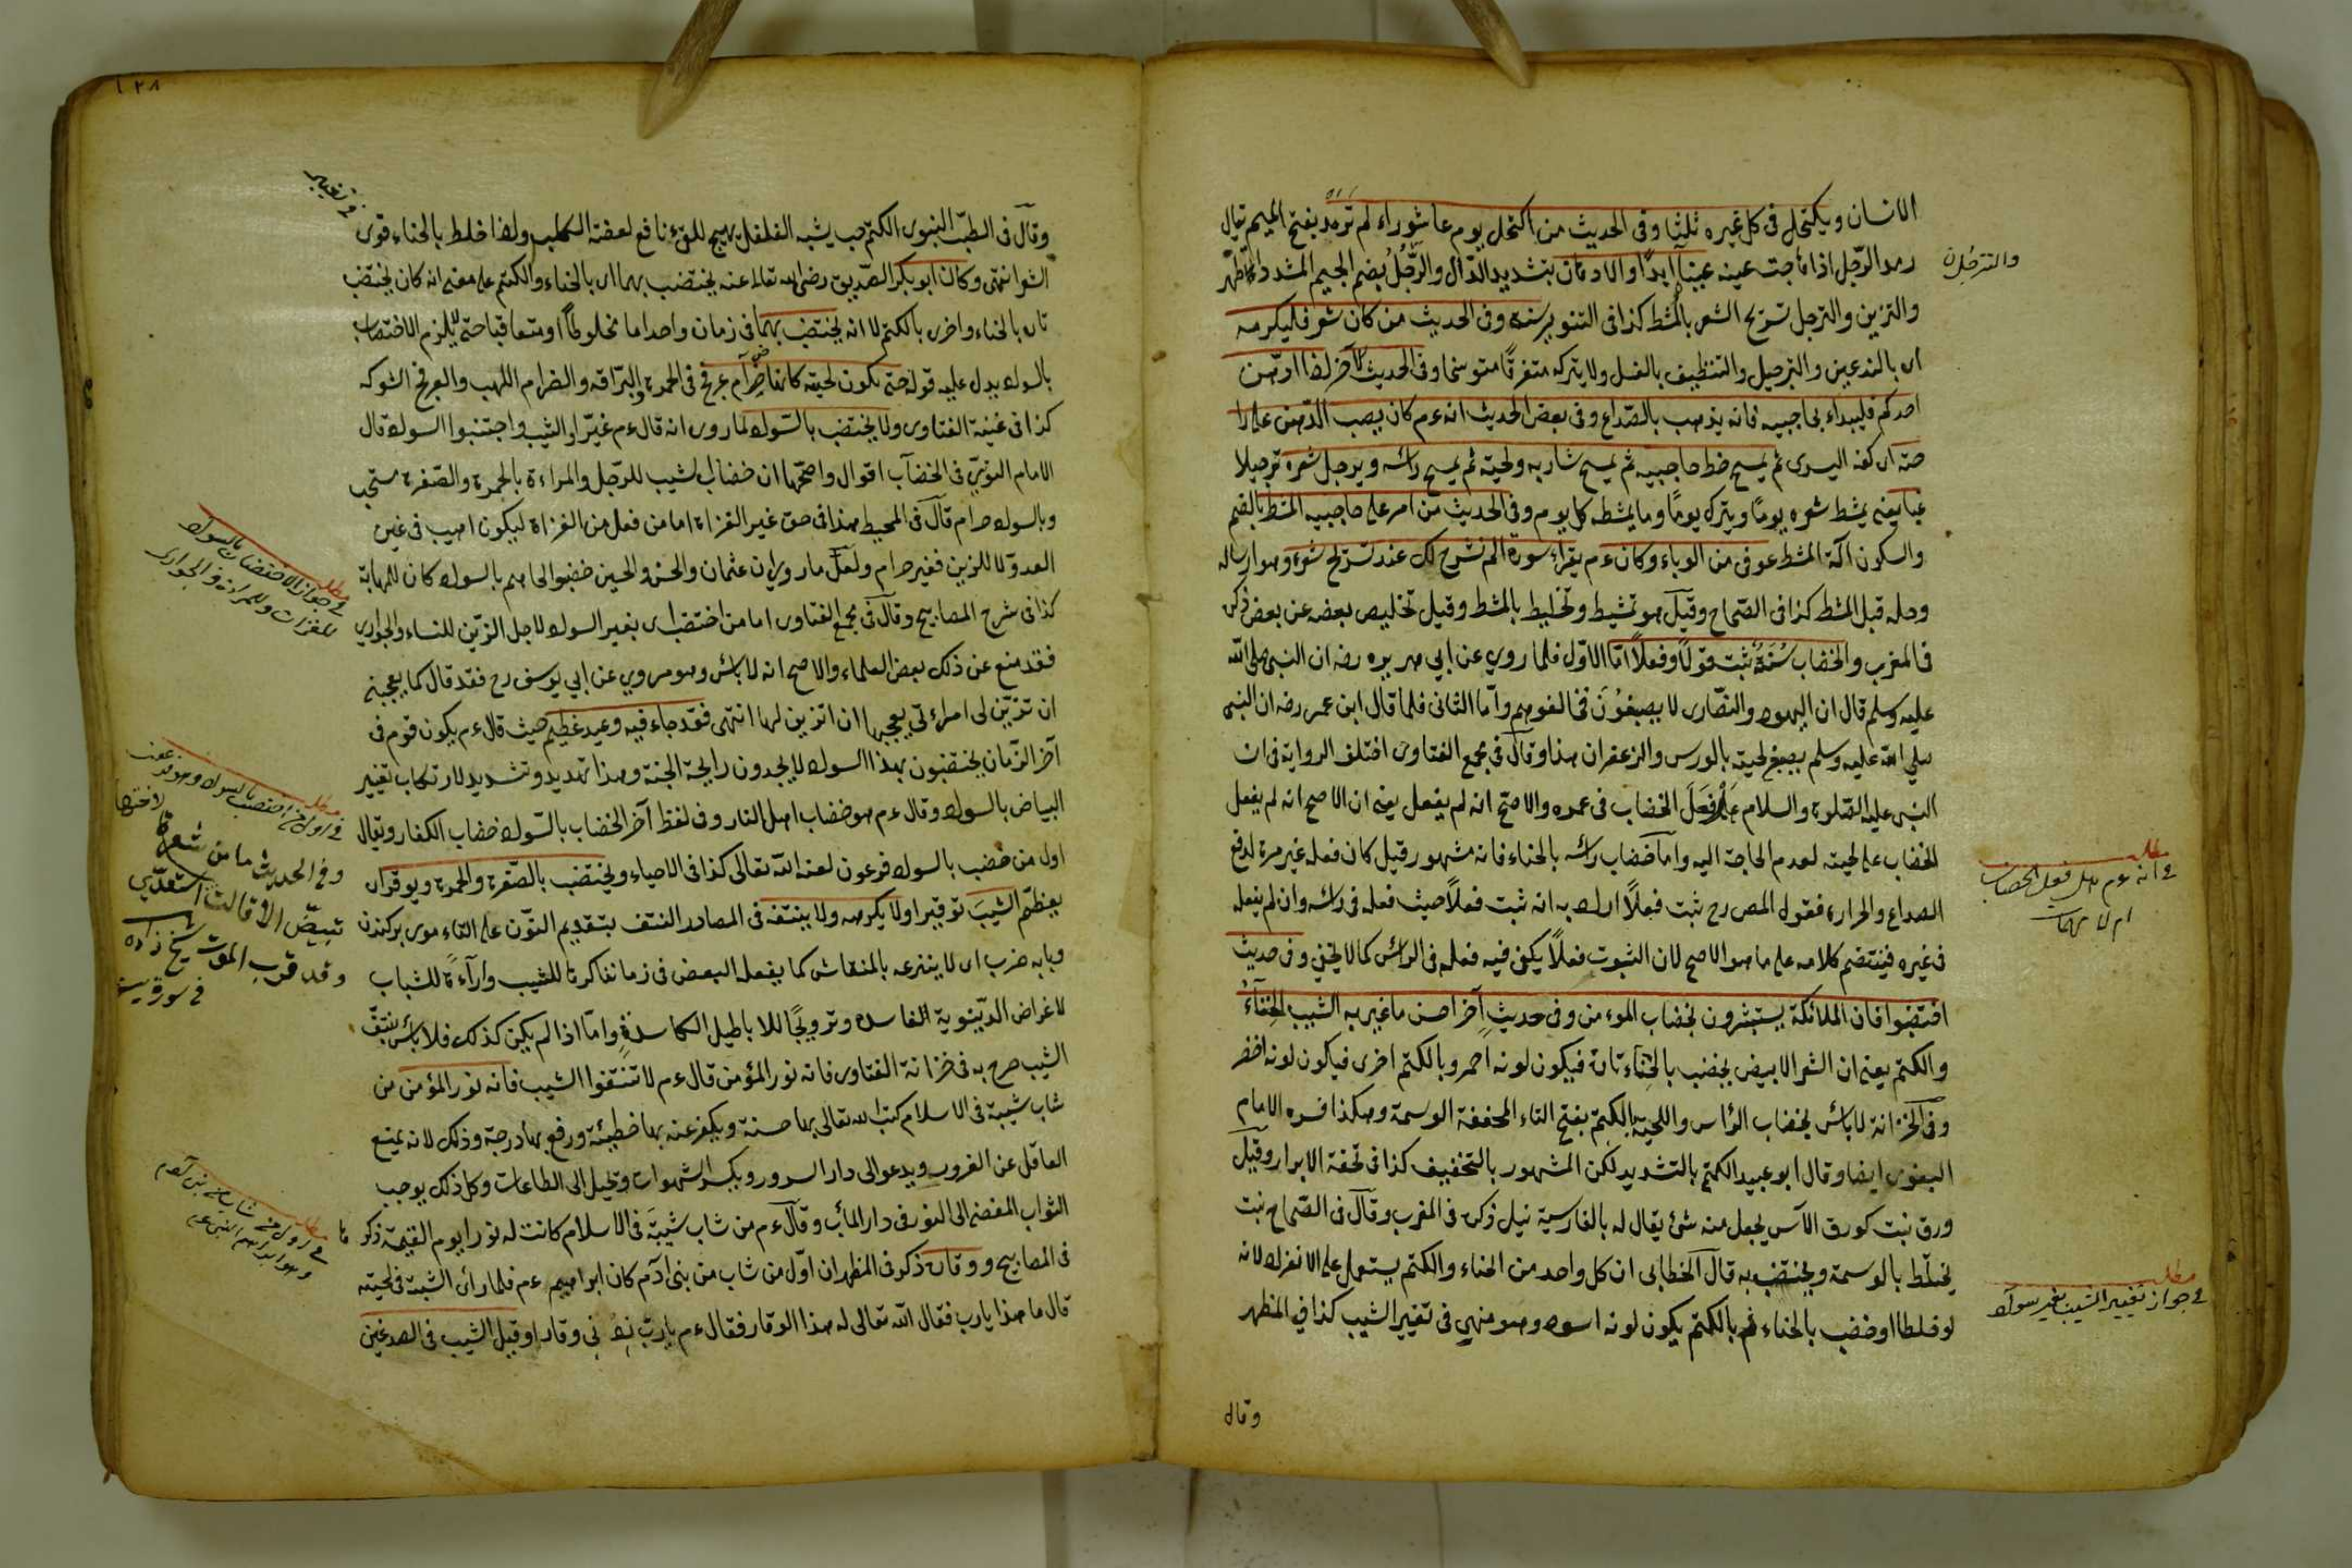 الانسان ويكتحل في كل غيره ثلثا وفي الحديث من اكتحل يوم عاشوراء لم ترمد بفتح الميم يقال
رمد الرجل اذا هاجت عينه عينا ابدا والادهان بتشديد الدال والترجل بضم الجيم المشدد
والتزين والترجل تسريح الشعر بالمشط كذا في التنوير سنة وفي الحديث من كان شعر فليكرمه
اى بالتدهين والترجيل والتنظيف بالغسل ولا يتركه متفرقا متوسخا وفي الحديث الآخر اذا ادهن
احدكم فليبداء بحاجبيه فانه يذهب بالصداع وفي بعض الحديث انه عم كان يصب الدهن على را
حته اى كفه اليسرى ثم يمسح خط حاجبيه ثم يمسح شاربه ولحيته ثم يمسح راسه ويرجل شعره ترجيلا
غبا يعنى يمشط شعره يوما ويترك يوما وما يمشطه كل يوم وفي الحديث من امر على حاجبيه المشط بالضم
والسكون آلة المشط عوفى من الوباء وكان عم يقراء سورة الم نشرح لك عند تسريح شعره وهو ارساله
وحله قبل المشط كذا في الصحاح وقيل هو تمشيط وتخليط بالمشط وقيل تخليص بعضه عن بعض ذكره
في المغرب والخضاب سنة ثبت قولا وفعلا اما الاول فلما روي عن ابي هريره رضه ان النبي صلى الله
عليه وسلم قال ان اليهود والنصارى لا يصبغون فخالفوهم واما الثاني فلما قال ابن عمر رضه ان النبي
صلى الله عليه وسلم يصبغ لحيته بالورس والزعفران هذا وقال في مجمع الفتاوى اختلف الرواية في ان
النبى عليه الصلوة والسلام هل فعل الخضاب في عمره والاصح انه لم يفعل يعنى ان الاصح انه لم يفعل
الخضاب على لحيته لعدم الحاجة اليه واما خضاب راسه بالحناء فانه مشهور قيل كان فعله غير مرة لدفع
الصداع والحرارة فقول المص رح ثبت فعلا اراد به انه ثبت فعلا حيث فعله في راسه وان لم يفعله
في غيره فينتضم كلامه على ما هو الاصح لان الثبوت فعلا يكفى فيه فعله في الراس كما لا يخفى وفي حديث
اختضبوا فان الملائكة يستبشرون بخضاب المومن وفي حديث آخر احسن ما غير به الشيب الحناء
والكتم يعنى ان الشعر الابيض يخضب بالحناء تارة فيكون لونه احمر وبالكتم اخرى فيكون لونه اخضر
وفي الخزانة لا باس بخضاب الراس واللحية بالكتم بفتح التاء المخففة الوسمة وهكذا فسره الامام
البغوى ايضا وقال ابو عبيد الكتم بالتشديد لكن المشهور بالتخفيف كذا في تحفة الابرار وقيل
ورق نبت كورق الآس يجعل منه شئ يقال له بالفارسية نيل ذكره في المغرب وقال في الصحاح نبت
يختلط بالوسمة ويختضب به قال الخطابى ان كل واحد من الحناء والكتم يستعمل على الانفراد لانه
لو خلطا او خضب بالحناء ثم بالكتم يكون لونه اسود وهو منهى في تغيير الشيب كذا في المظهر
وقال
والترجل
مطلب
في انه عم هل فعل الخضاب
ام لا
مطلب
في جواز تغيير الشيب بغير سواد
١٢٨
وقال في الطب النبوى الكتم حب يشبه الفلفل يهيج للقئ نافع لعضة الكلب ولذا خلط بالحناء قوى
الشعر انتهى وكان ابو بكر الصديق رضى الله تعالى عنه يختضب بهما اى بالحناء والكتم على معنى انه كان يختضب
تارة بالحناء واخرى بالكتم لا انه يختضب بهما في زمان واحد اما مخلوطا او متعاقبا حتى يلزم الاختضاب
بالسواد يدل عليه قوله حتى يكون لحيته كانها ضرام عرفج في الحمرة والبراقة والضرام اللهب والعرفج الشوكه
كذا في غنية الفتاوى ولا يختضب بالسواد لما روى انه قال عم غيروا الشيب واجتنبوا السواد قال
الامام النووي في الخضاب اقوال واصحها ان خضاب الشيب للرجل والمراءة بالحمرة والصفرة مستحب
وبالسواد حرام قال في المحيط هذا في حق غير الغزاة اما من فعل من الغزاة ليكون اهيب في عين
العدو لا للزين فغير حرام ولعل ما روى ان عثمان والحسن والحسين خضبوا لحاهم بالسواد كان للمهابة
كذا في شرح المصابيح وقال في مجمع الفتاوى اما من اختضب اى بغير السواد لاجل التزين للنساء والجوارى
فقد منع عن ذلك بعض العلماء والاصح انه لا باس وهو مروي عن ابي يوسف رح فقد قال كما يعجبنى
ان تتزين لى امراءتى يعجبها ان اتزين لها انتهى فقد جاء فيه وعيد عظيم حيث قال عم يكون قوم في
آخر الزمان يختضبون بهذا السواد لا يجدون رايحة الجنة وهذا تهديد وتشديد لارتكاب تغيير
البياض بالسواد وقال عم هو خضاب اهل النار وفي لفظ آخر الخضاب بالسواد خضاب الكفار ويقال
اول من خضب بالسواد فرعون لعنه الله تعالى كذا في الاحياء ويختضب بالصفرة والحمرة ويوقر اى
يعظم الشيب توقيرا ولا يكرهه ولا ينتفه في المصادر النتف بتقديم النون على التاء موى بركندن
وبابه ضرب اى لا ينزعه بالمنقاش كما يفعله البعض في زماننا كرها للشيب وارآءة للشباب
لاغراض الدنيوية الفاسدة وترويجا للاباطيل الكاسدة واما اذا لم يكن كذلك فلا باس بنتف
الشيب صرح به في خزانة الفتاوى فانه نور المؤمن قال عم لا تنتفوا الشيب فانه نور المؤمن من
شاب شيبة في الاسلام كتب الله تعالى بها حسنة ويكفر عنه بها خطيئة ورفع بها درجة وذلك لانه يمنع
العاقل عن الغرور ويدعو الى دار السرور ويكسر الشهوات ويميل الى الطاعات وكل ذلك يوجب
الثواب المفضى الى النور في دار المآب وقال عم من شاب شيبة في الاسلام كانت له نورا يوم القيمة ذكره
في المصابيح ووقاره ذكر في المظهر ان اول من شاب من بنى آدم كان ابراهيم عم فلما راى الشيبة في لحيته
قال ما هذا يارب فقال الله تعالى له هذا الوقار فقال عم يارب زدنى وقارا وقيل الشيب في الصدغين
مطلب
في جواز الاختضاب بالسواد
للغزات وللمراءة والجوارى
مطلب
في اول من اختضب بالسواد وهو فرعون
وفي الحديث ما من شعرة
تبيض الا قالت لاختها استعدى
وقد قرب الموت شيخ زاده
في سورة يس
مطلب
في اول من شاب من بنى آدم
وهو ابراهيم النبى عم